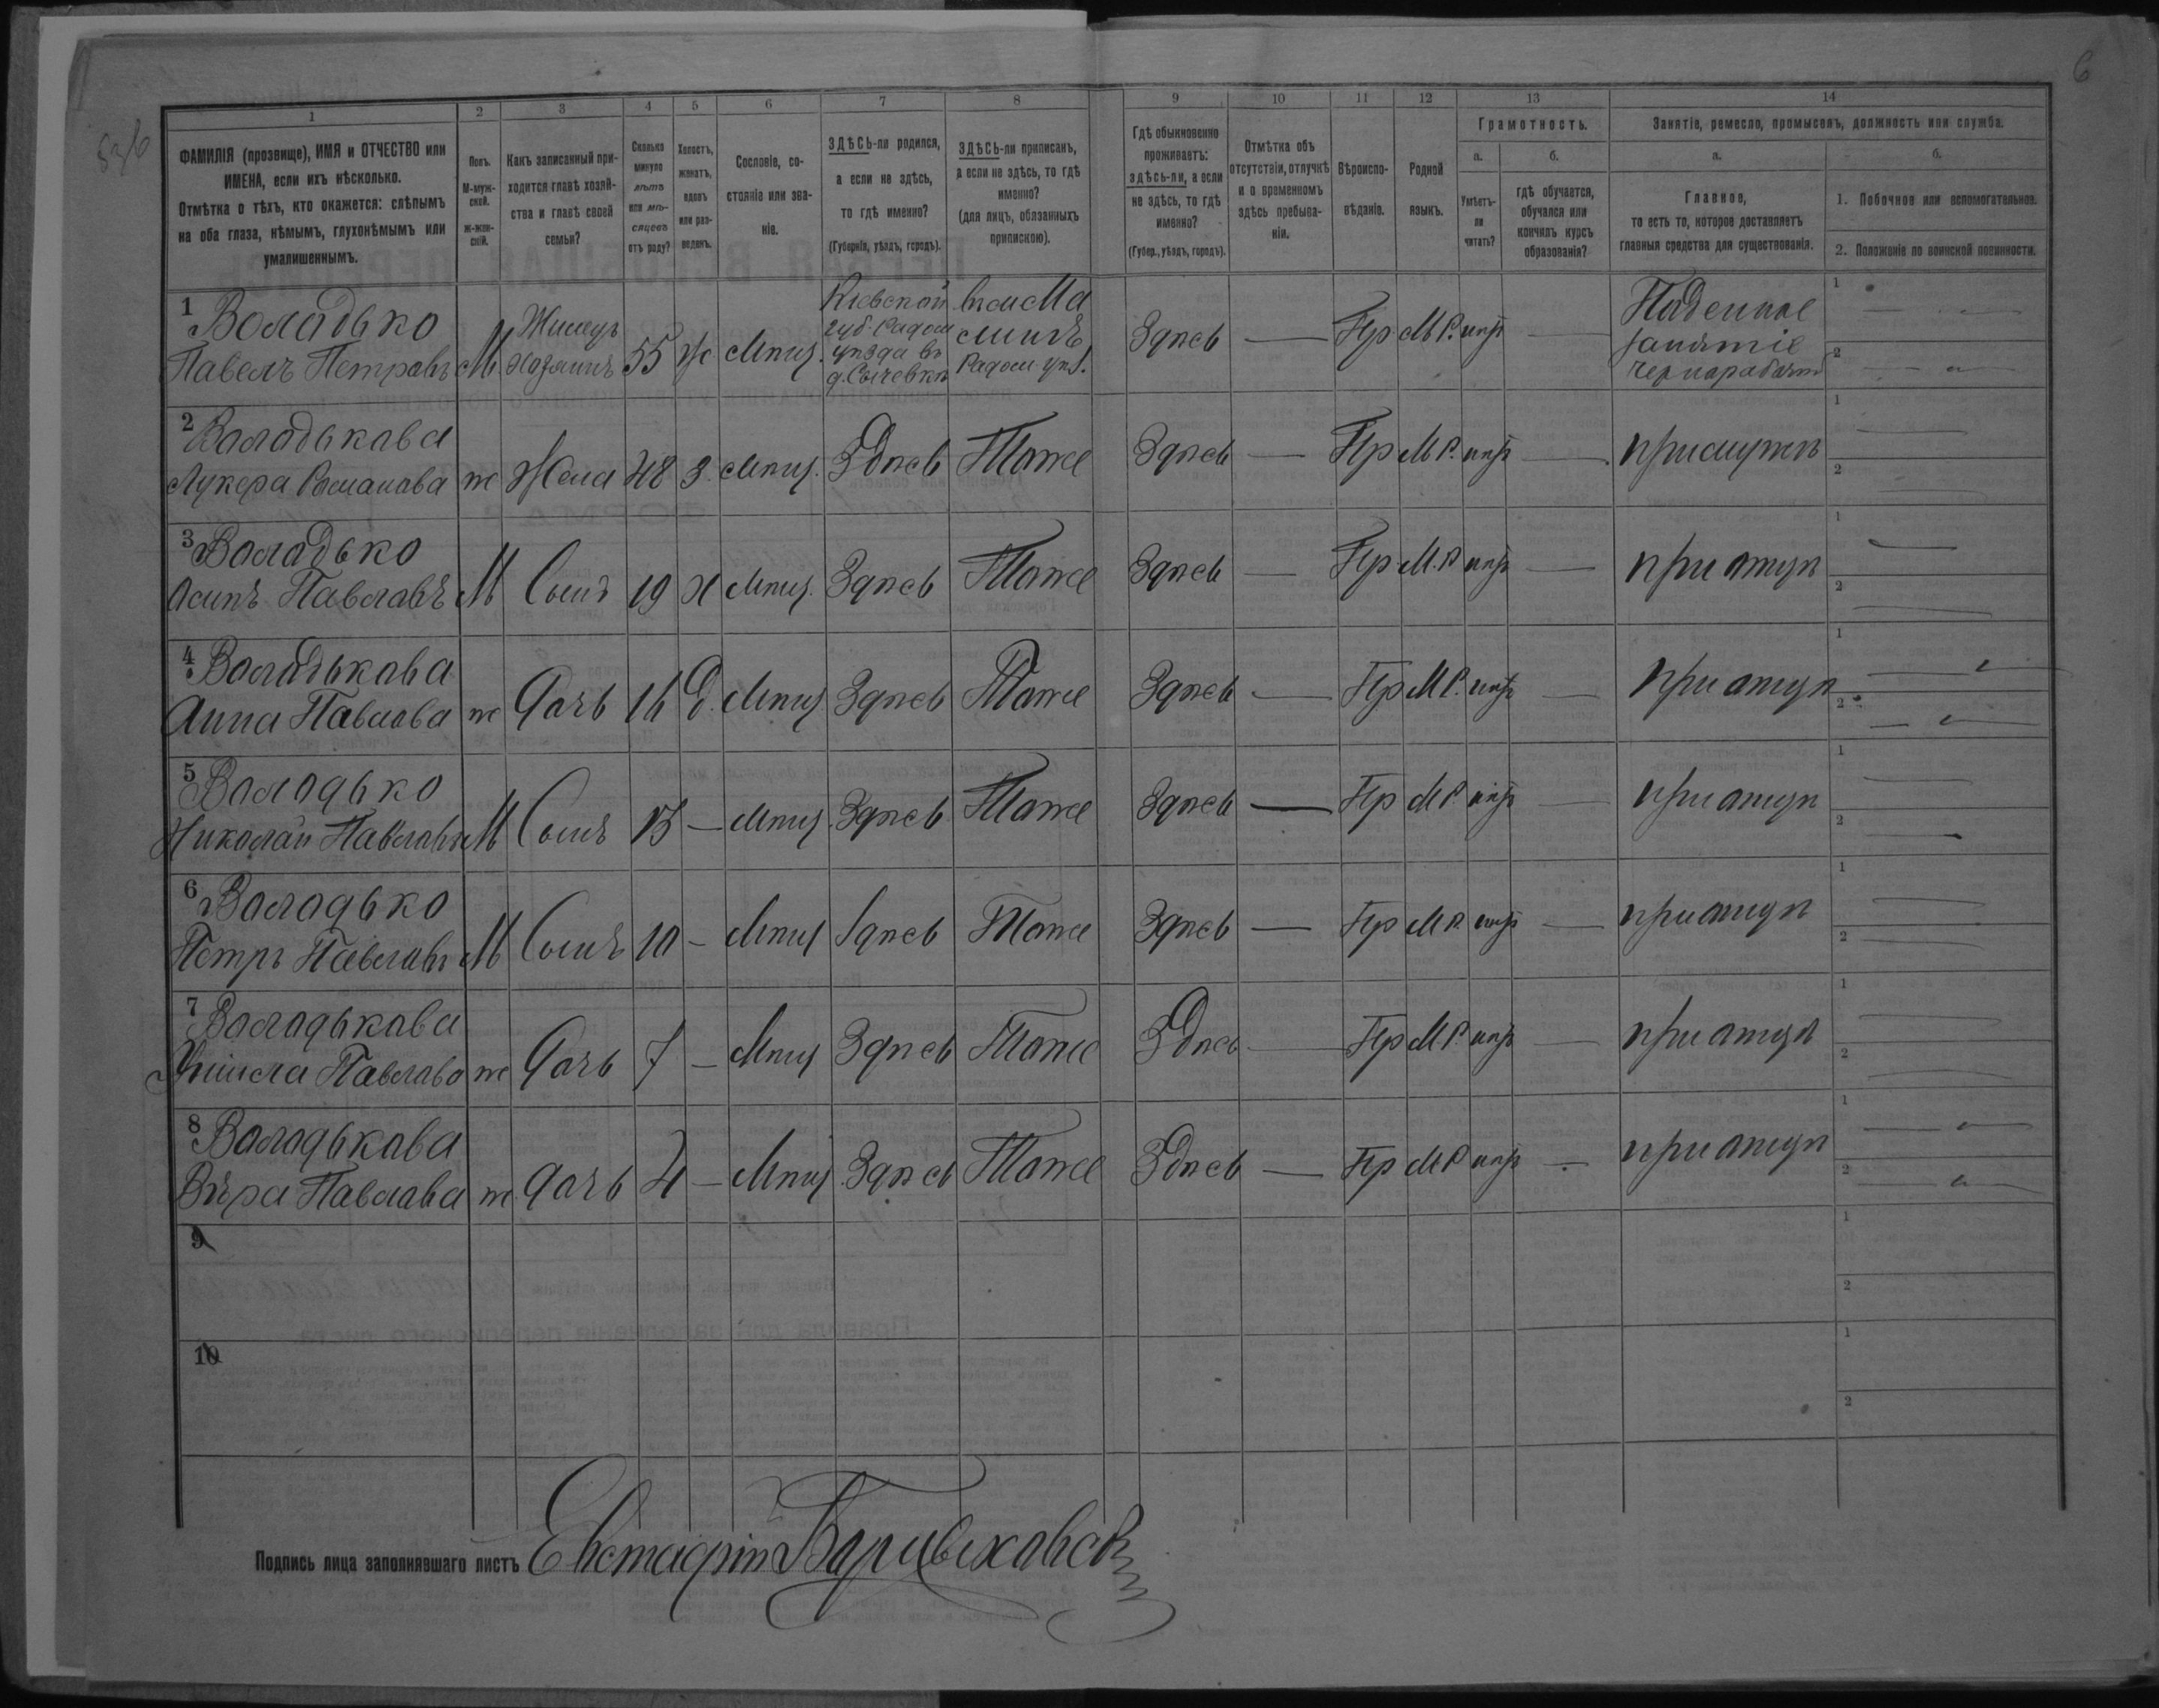 6
1
2
3
4
5
6
7
8
9
10
11
12
13
14
ФАМИЛІЯ (прозвище), ИМЯ и ОТЧЕСТВО или
ИМЕНА, если ихъ нѣсколько.
Отмѣтка о тѣхъ, кто окажется: слѣпымъ
на оба глаза, нѣмымъ, глухонѣмымъ или
умалишеннымъ.
Полъ.
М-муж-
ской.
ж-жен-
скій.
Какъ записанный при-
ходится главѣ хозяй-
ства и главѣ своей
семьи?
Сколько
минуло
лѣтъ
или мѣ-
сяцевъ
отъ роду?
Холостъ,
женатъ,
вдовъ
или раз-
веденъ.
Сословіе, со-
стояніе или зва-
ніе.
ЗДѢСЬ-ли родился,
а если не здѣсь,
то гдѣ именно?
(Губернія, уѣздъ, городъ).
ЗДѢСЬ-ли приписанъ,
а если не здѣсь, то гдѣ
именно?
(для лицъ, обязанныхъ
припискою).
Гдѣ обыкновенно
проживаетъ:
здѣсь-ли, а если
не здѣсь, то гдѣ
именно?
(Губер., уѣздъ, городъ).
Отмѣтка объ
отсутствіи, отлучкѣ
и о временномъ
здѣсь пребыва-
ніи.
Вѣроиспо-
вѣданіе.
Родной
языкъ.
Грамотность.
а.
Умѣетъ-
ли
читать?
б.
гдѣ обучается,
обучался или
кончилъ курсъ
образованія?
Занятіе, ремесло, промыселъ, должность или служба.
а.
Главное,
то есть то, которое доставляетъ
главныя средства для существованія.
б.
1. Побочное или вспомогательное.
2. Положеніе по воинской повинности.
1 Воладько
Павелъ Петравъ М Жилецъ хозяинъ 55 ж мпщ. Кіевской губ. Радом упзда въ д. Сычевкп Радом упз. Здпсь — Пр М.Р. нпр — Паденное занятіе чернорабочій 1 — 2 —
2 Валадькава
Лукера Раманава ж Жена 48 з. мпщ. Здпсь Тоже Здпсь — Пр М.Р. нпр — 1 — 2 —
3 Воладько
Асипъ Павлавъ М Сынъ 19 х мпщ. Здпсь Тоже Здпсь — Пр М.Р. нпр — при отцп 1 — 2 —
4 Воладькава
Анна Павлова ж Дачь 16 д. мпщ Здпсь Тоже Здпсь — Пр М.Р. нпр — при отцп 1 — 2 —
5 Володько
Николай Павлавъ М Сынъ 13 — мпщ. Здпсь Тоже Здпсь — Пр М.Р. нпр — при отцп 1 — 2 —
6 Валодько
Петръ Павлавъ М Сынъ 10 — мпщ Здпсь Тоже Здпсь — Пр М.Р. нпр — при отцп 1 — 2 —
7 Валадькава
Павлаво ж Дачь 7 — мпщ Здпсь Тоже Здпсь — Пр М.Р. нпр — при отцп 1 — 2 —
8 Валадькава
Впра Павлава ж. Дачь 4 — мпщ. Здпсь Тоже Здпсь — Пр М.Р. нпр — при отцп 1 — 2 —
9 1 2
10 1 2
Подпись лица заполнявшаго листъ Евстафій